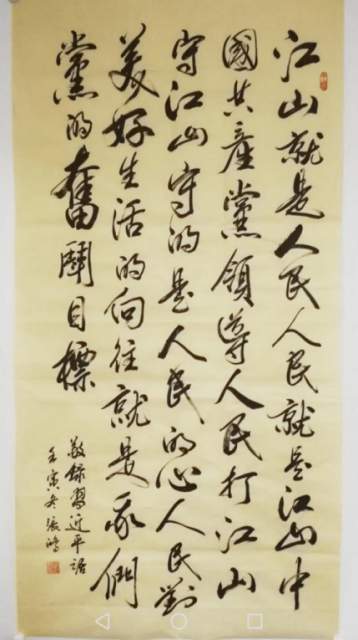 江山就是人民人民就是江山中
國共產黨領導人民打江山
守江山守的是人民的心人民對
美好生活的向往就是我們
黨的奮鬥目標
敬錄習近平語
壬寅冬張鴻